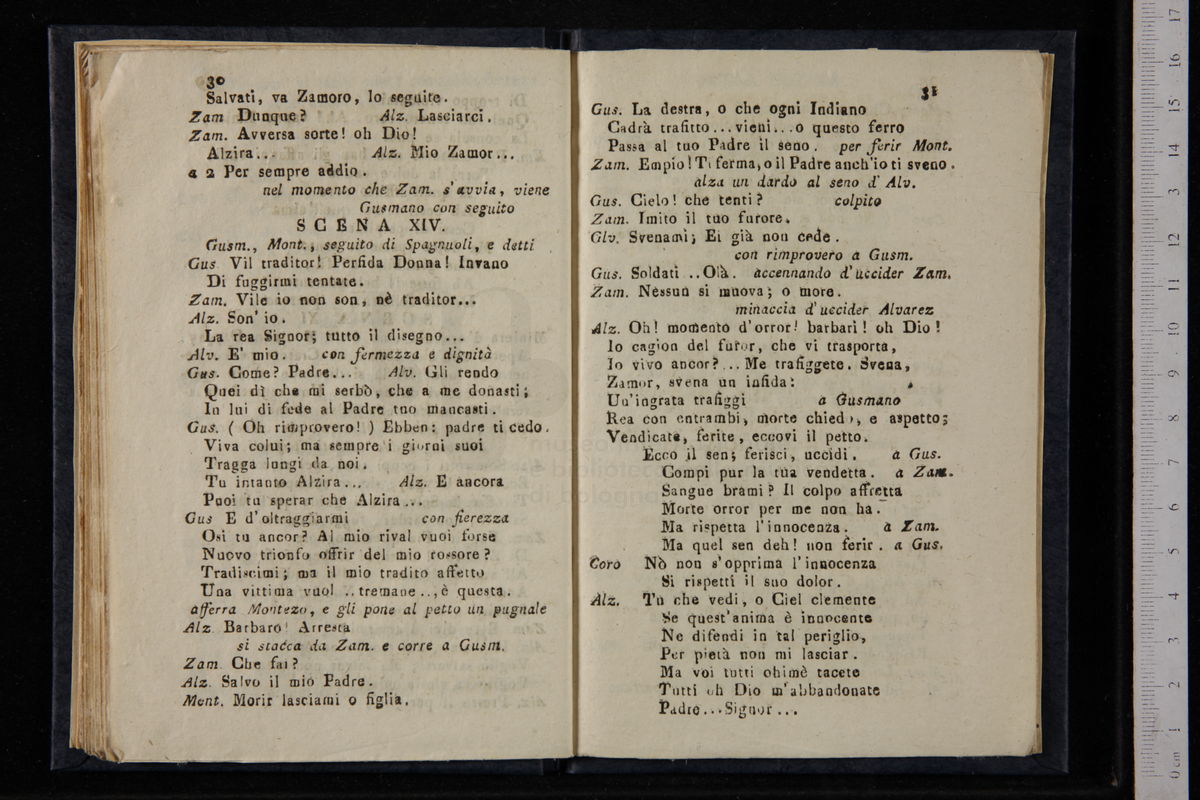 30
Salvati, va Zamoro, lo seguite.
Zam Dunque? Alz. Lasciarci.
Zam. Avversa sorte! oh Dio!
Alzira... Alz. Mio Zamor...
a 2 Per sempre addio.
nel momento che Zam. s'avvia, viene
Gusmano con seguito
SCENA XIV.
Gusm., Mont., seguito di Spagnuoli, e detti
Gus Vil traditor! Perfida Donna! Invano
Di fuggirmi tentate.
Zam. Vile io non son, nè traditor...
Alz. Son' io.
La rea Signor; tutto il disegno...
Alv. E' mio. con fermezza e dignità
Gus. Come? Padre... Alv. Gli rendo
Quei dì che mi serbò, che a me donasti;
In lui di fede al Padre tuo mancasti.
Gus. (Oh rimprovero!) Ebben: padre ti cedo.
Viva colui; ma sempre i giorni suoi
Tragga lungi da noi.
Tu intanto Alzira... Alz. E ancora
Puoi tu sperar che Alzira...
Gus E d'oltraggiarmi con fierezza
Osi tu ancor? Al mio rival vuoi forse
Nuovo trionfo offrir del mio rossore?
Tradiscimi; ma il mio tradito affetto
Una vittima vuol ..tremane.., è questa.
afferra Montezo, e gli pone al petto un pugnale
Alz. Barbaro! Arresta
si stacca da Zam. e corre a Gusm.
Zam. Che fai?
Alz. Salvo il mio Padre.
Mont. Morir lasciami o figlia.
31
Gus. La destra, o che ogni Indiano
Cadrà trafitto...vieni...o questo ferro
Passa al tuo Padre il seno. per ferir Mont.
Zam. Empio! Ti ferma, o il Padre anch'io ti sveno.
alza un dardo al seno d'Alv.
Gus. Cielo! che tenti? colpito
Zam. Imito il tuo furore.
Glv. Svenami; Ei già non cede.
con rimprovero a Gusm.
Gus. Soldati ..Olà. accennando d'uccider Zam.
Zam. Nessun si muova; o more.
minaccia d'uccider Alvarez
Alz. Oh! momento d'orror! barbari! oh Dio!
Io cagion del furor, che vi trasporta,
Io vivo ancor?... Me trafiggete. Svena,
Zamor, svena un infida:
Un'ingrata trafiggi a Gusmano
Rea con entrambi, morte chiedo, e aspetto;
Vendicate, ferite, eccovi il petto.
Ecco il sen; ferisci, uccidi. a Gus.
Compi pur la tua vendetta. a Zam.
Sangue brami? Il colpo affretta
Morte orror per me non ha.
Ma rispetta l'innocenza. a Zam.
Ma quel sen deh! non ferir. a Gus.
Coro Nò non s'opprima l'innocenza
Si rispetti il suo dolor.
Alz. Tu che vedi, o Ciel clemente
Se quest'anima è innocente
Ne difendi in tal periglio,
Per pietà non mi lasciar.
Ma voi tutti ohimè tacete
Tutti oh Dio m'abbandonate
Padre...Signor...
museo
biblioteca
di bologna
0 cm 1 2 3 4 5 6 7 8 9 10 11 12 13 14 15 16 17